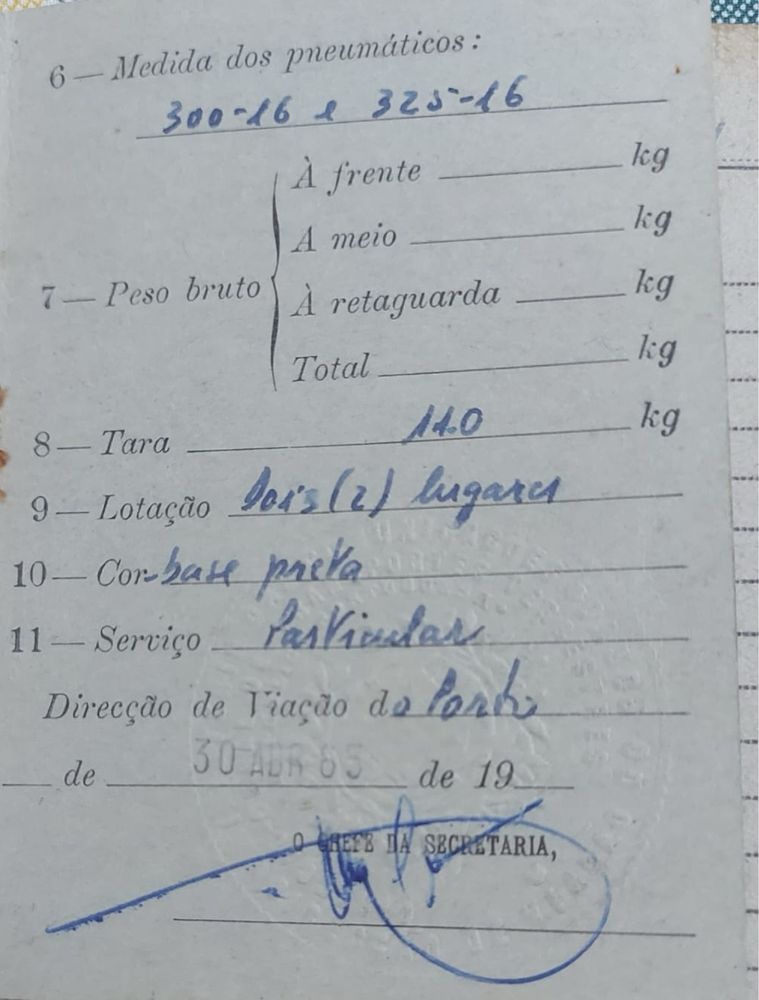 6 — Medida dos pneumáticos:
300-16 e 325-16
À frente kg
A meio kg
7 — Peso bruto
À retaguarda kg
Total kg
8 — Tara 110 kg
9 — Lotação Dois (2) lugares
10 — Cor-base preta
11 — Serviço Particular
Direcção de Viação do Porto
30 ABR 65
de de 19
O CHEFE DA SECRETARIA,